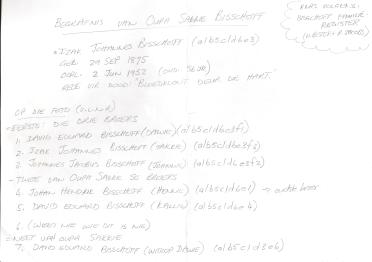 BEGRAFNIS VAN OUPA SAKKIE BISSCHOFF
KODES VOLGENS:
BISSCHOFF FAMILIE
REGISTER
IZAK JOHANNES BISSCHOFF (a1b5c1d6e3)
GEB: SEP 1875
OORL: 2 JUN 1952
REDE VIR DOOD: "BLOEDKLONT DEUR DIE HART."
OP DIE FOTO (V.L.N.R)
- EERSTE: DIE DRIE BROERS
1. DAVID EDUARD BISSCHOFF (DAWIE) (a1b5c1d6e3f1)
2. IZAK JOHANNES BISSCHOFF (SAKKIE) (a1b5c1d6e3f2)
3. JOHANNES JACOBUS BISSCHOFF (a1b5c1d6e3f3)
- TWEE VAN OUPA SAKKIE SE BROERS
4. JOHAN HENDRIK BISSCHOFF (HENNIE) (a1b5c1d6e1) → oudste broer
5. DAVID EDUARD BISSCHOFF (KALLIE) (a1b5c1d6e4)
6. (WEET NIE WIE DIT IS NIE)
- NEEF VAN OUPA SAKKIE
7. DAVID EDUARD BISSCHOFF (WITKOP DAWIE) (a1b5c1d3e6)